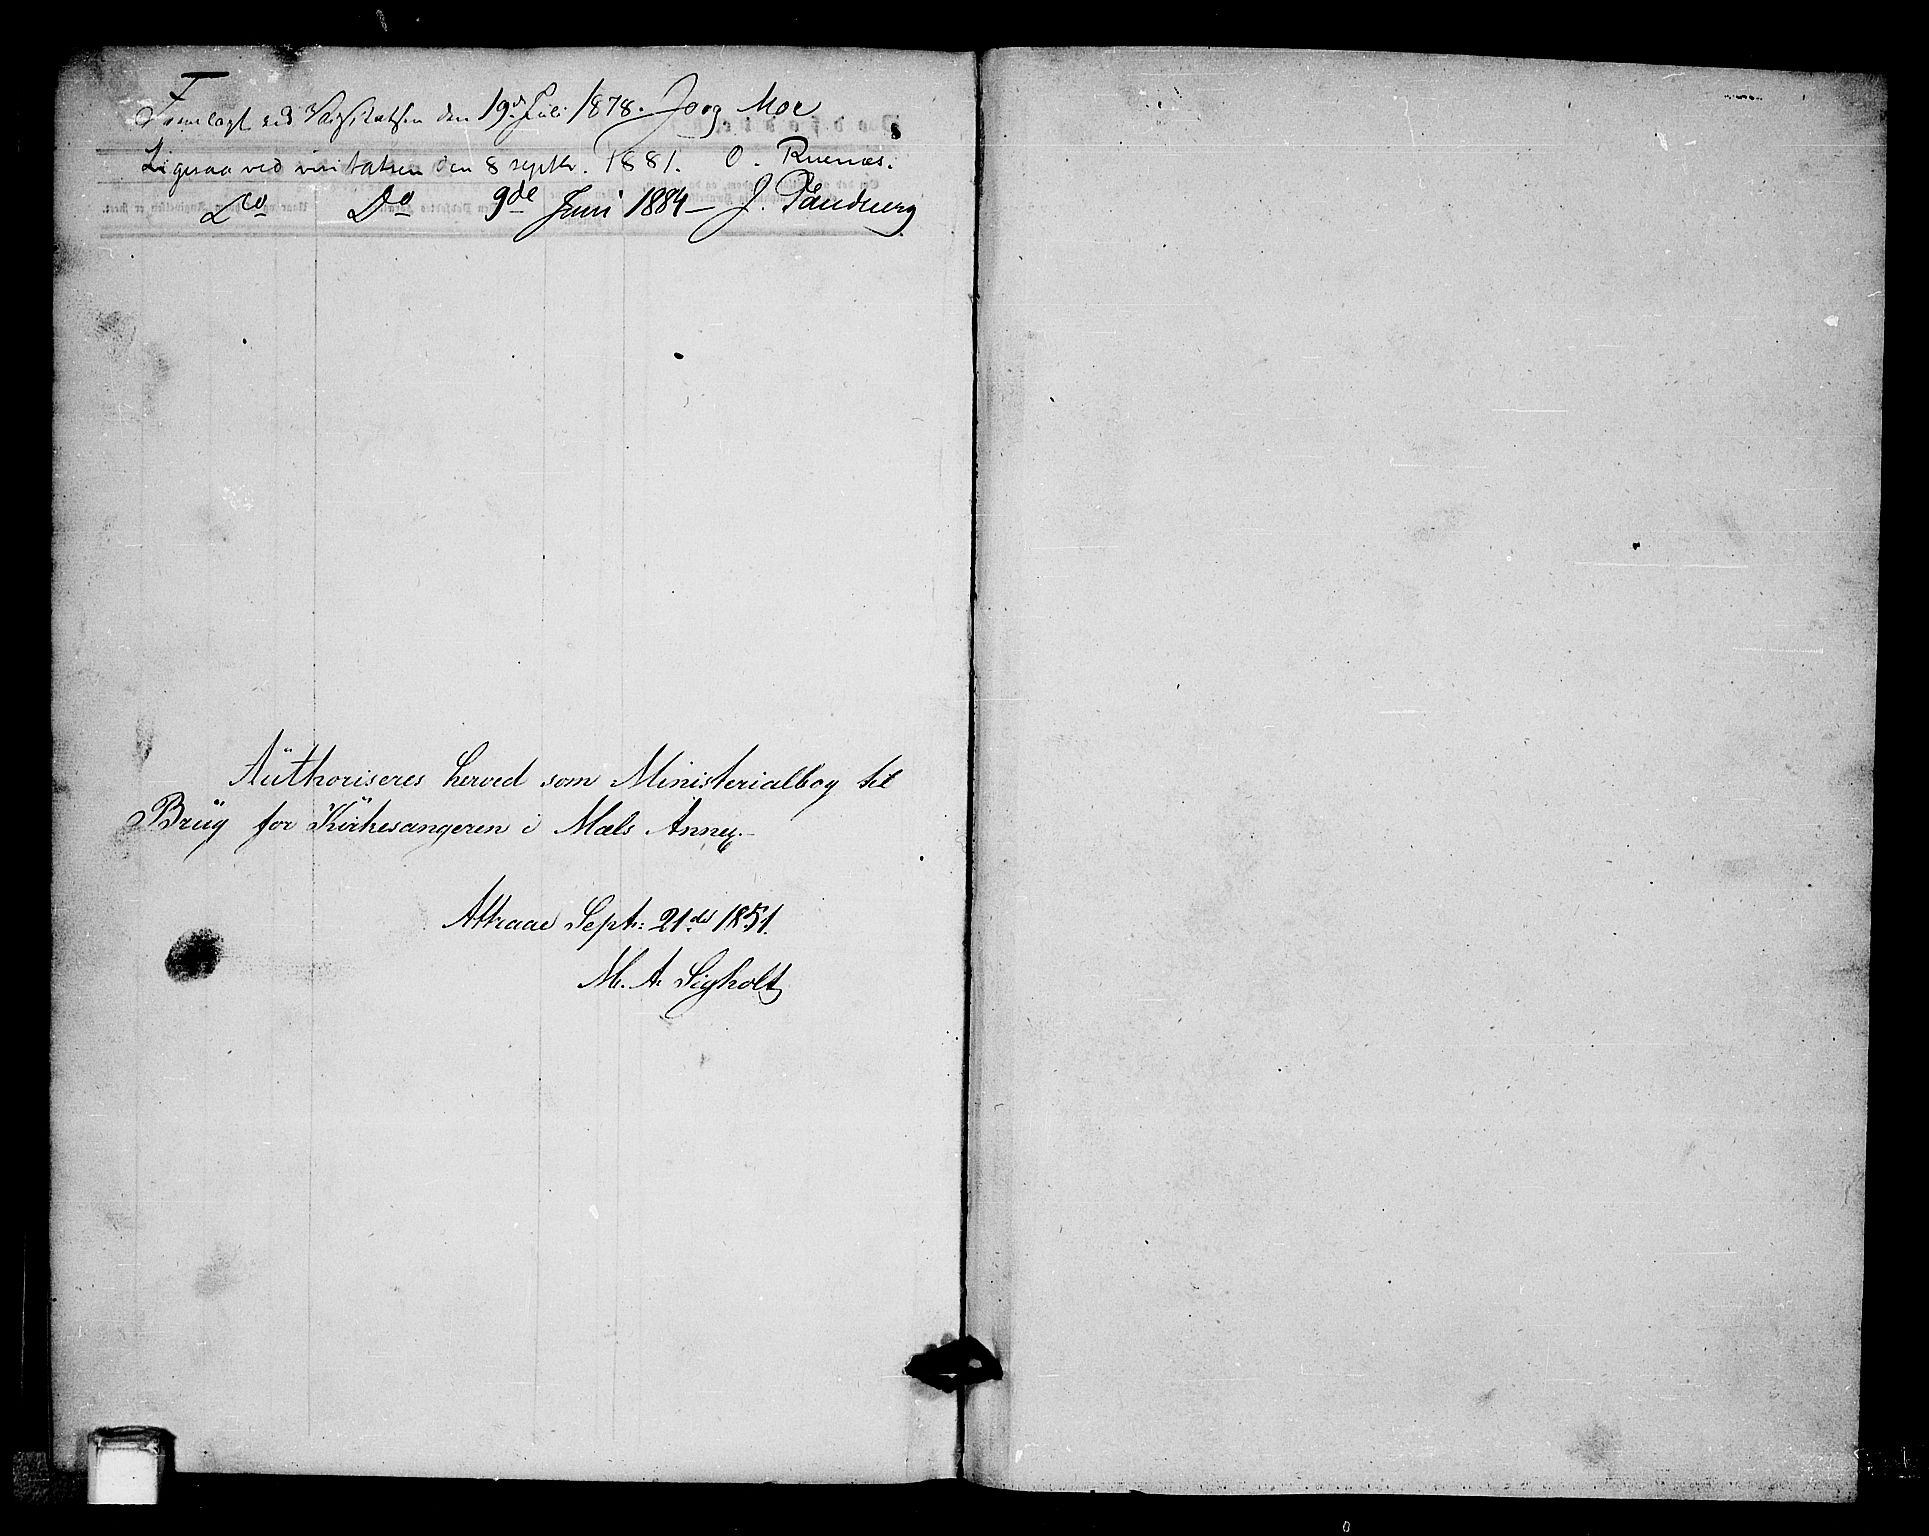 Fremlagt ved Visitatsen den 19de Juli 1878. Jørg Moe
Ligesaa ved visitatsen den 8 septbr. 1881. O. Ruenæs.
Do Do 9de Juni 1884 – J.
Authoriseres herved som Ministerialbog til
Brug for Kirkesangeren i Mæls Annex.
Attraae Septr: 21de 1851.
M. A. Sigholt